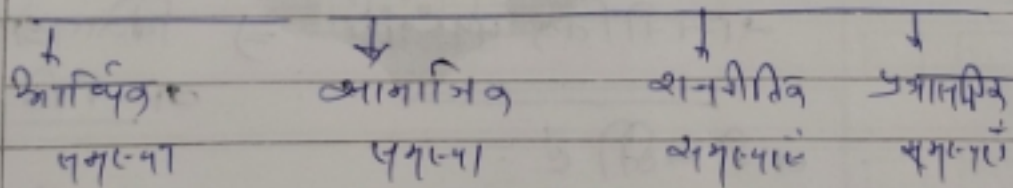 आर्थिक सामाजिक राजनीतिक प्रशासनिक
समस्या समस्या समस्याएं समस्याएं